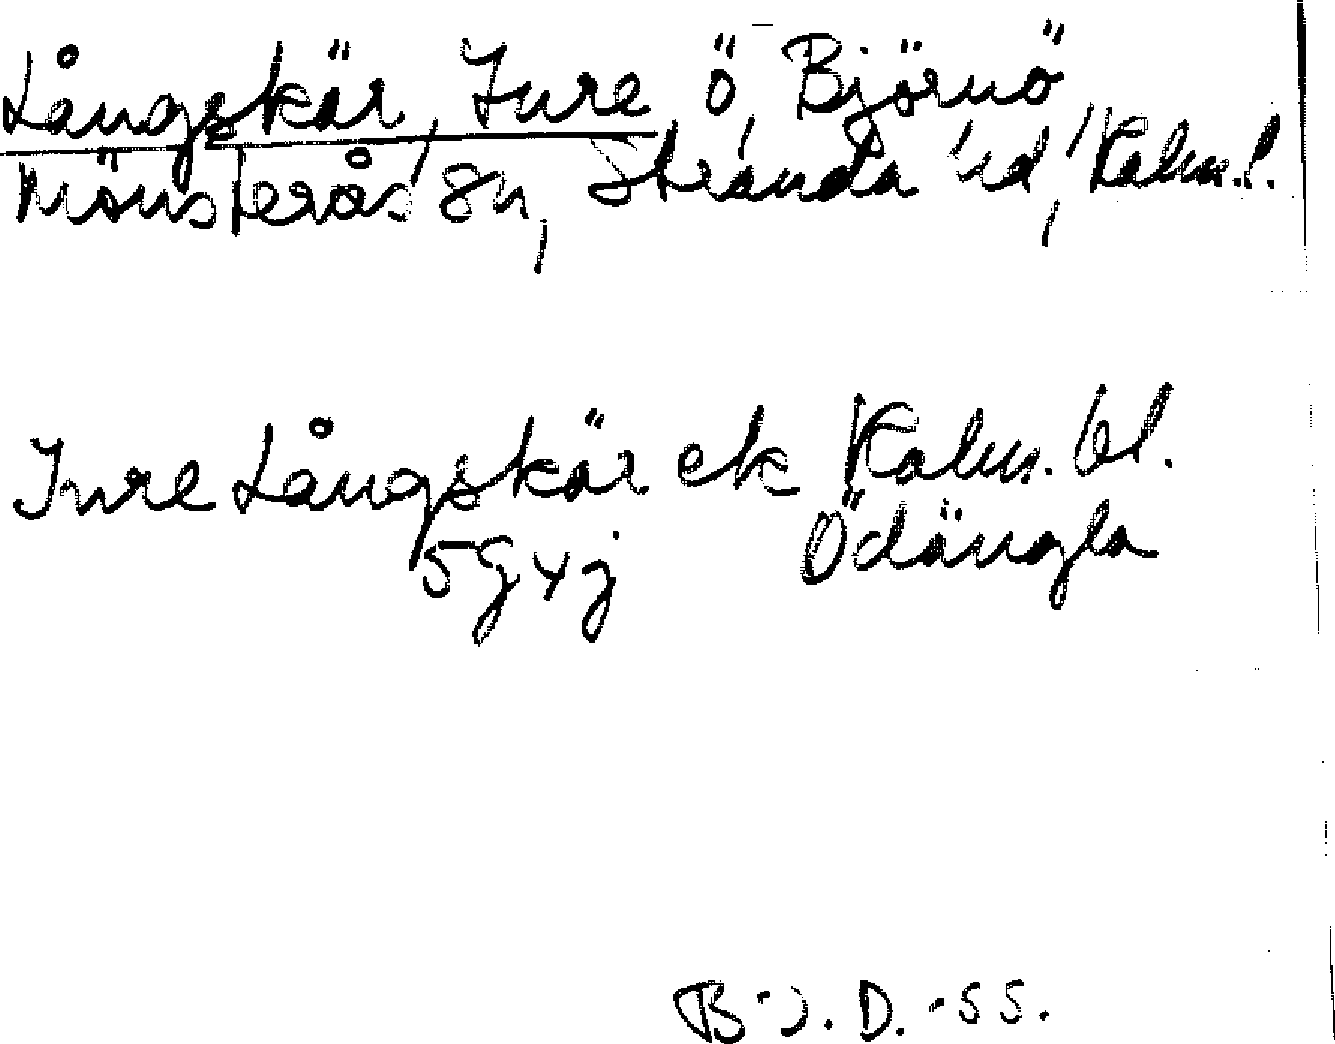 Långskär, Ture ö, Björnö,
Mönsterås sn, Stranda hd, Kalm.l.
Ture Långskär ek Kalm. bl.
5G4j Ödängla
B-J. D. -55.